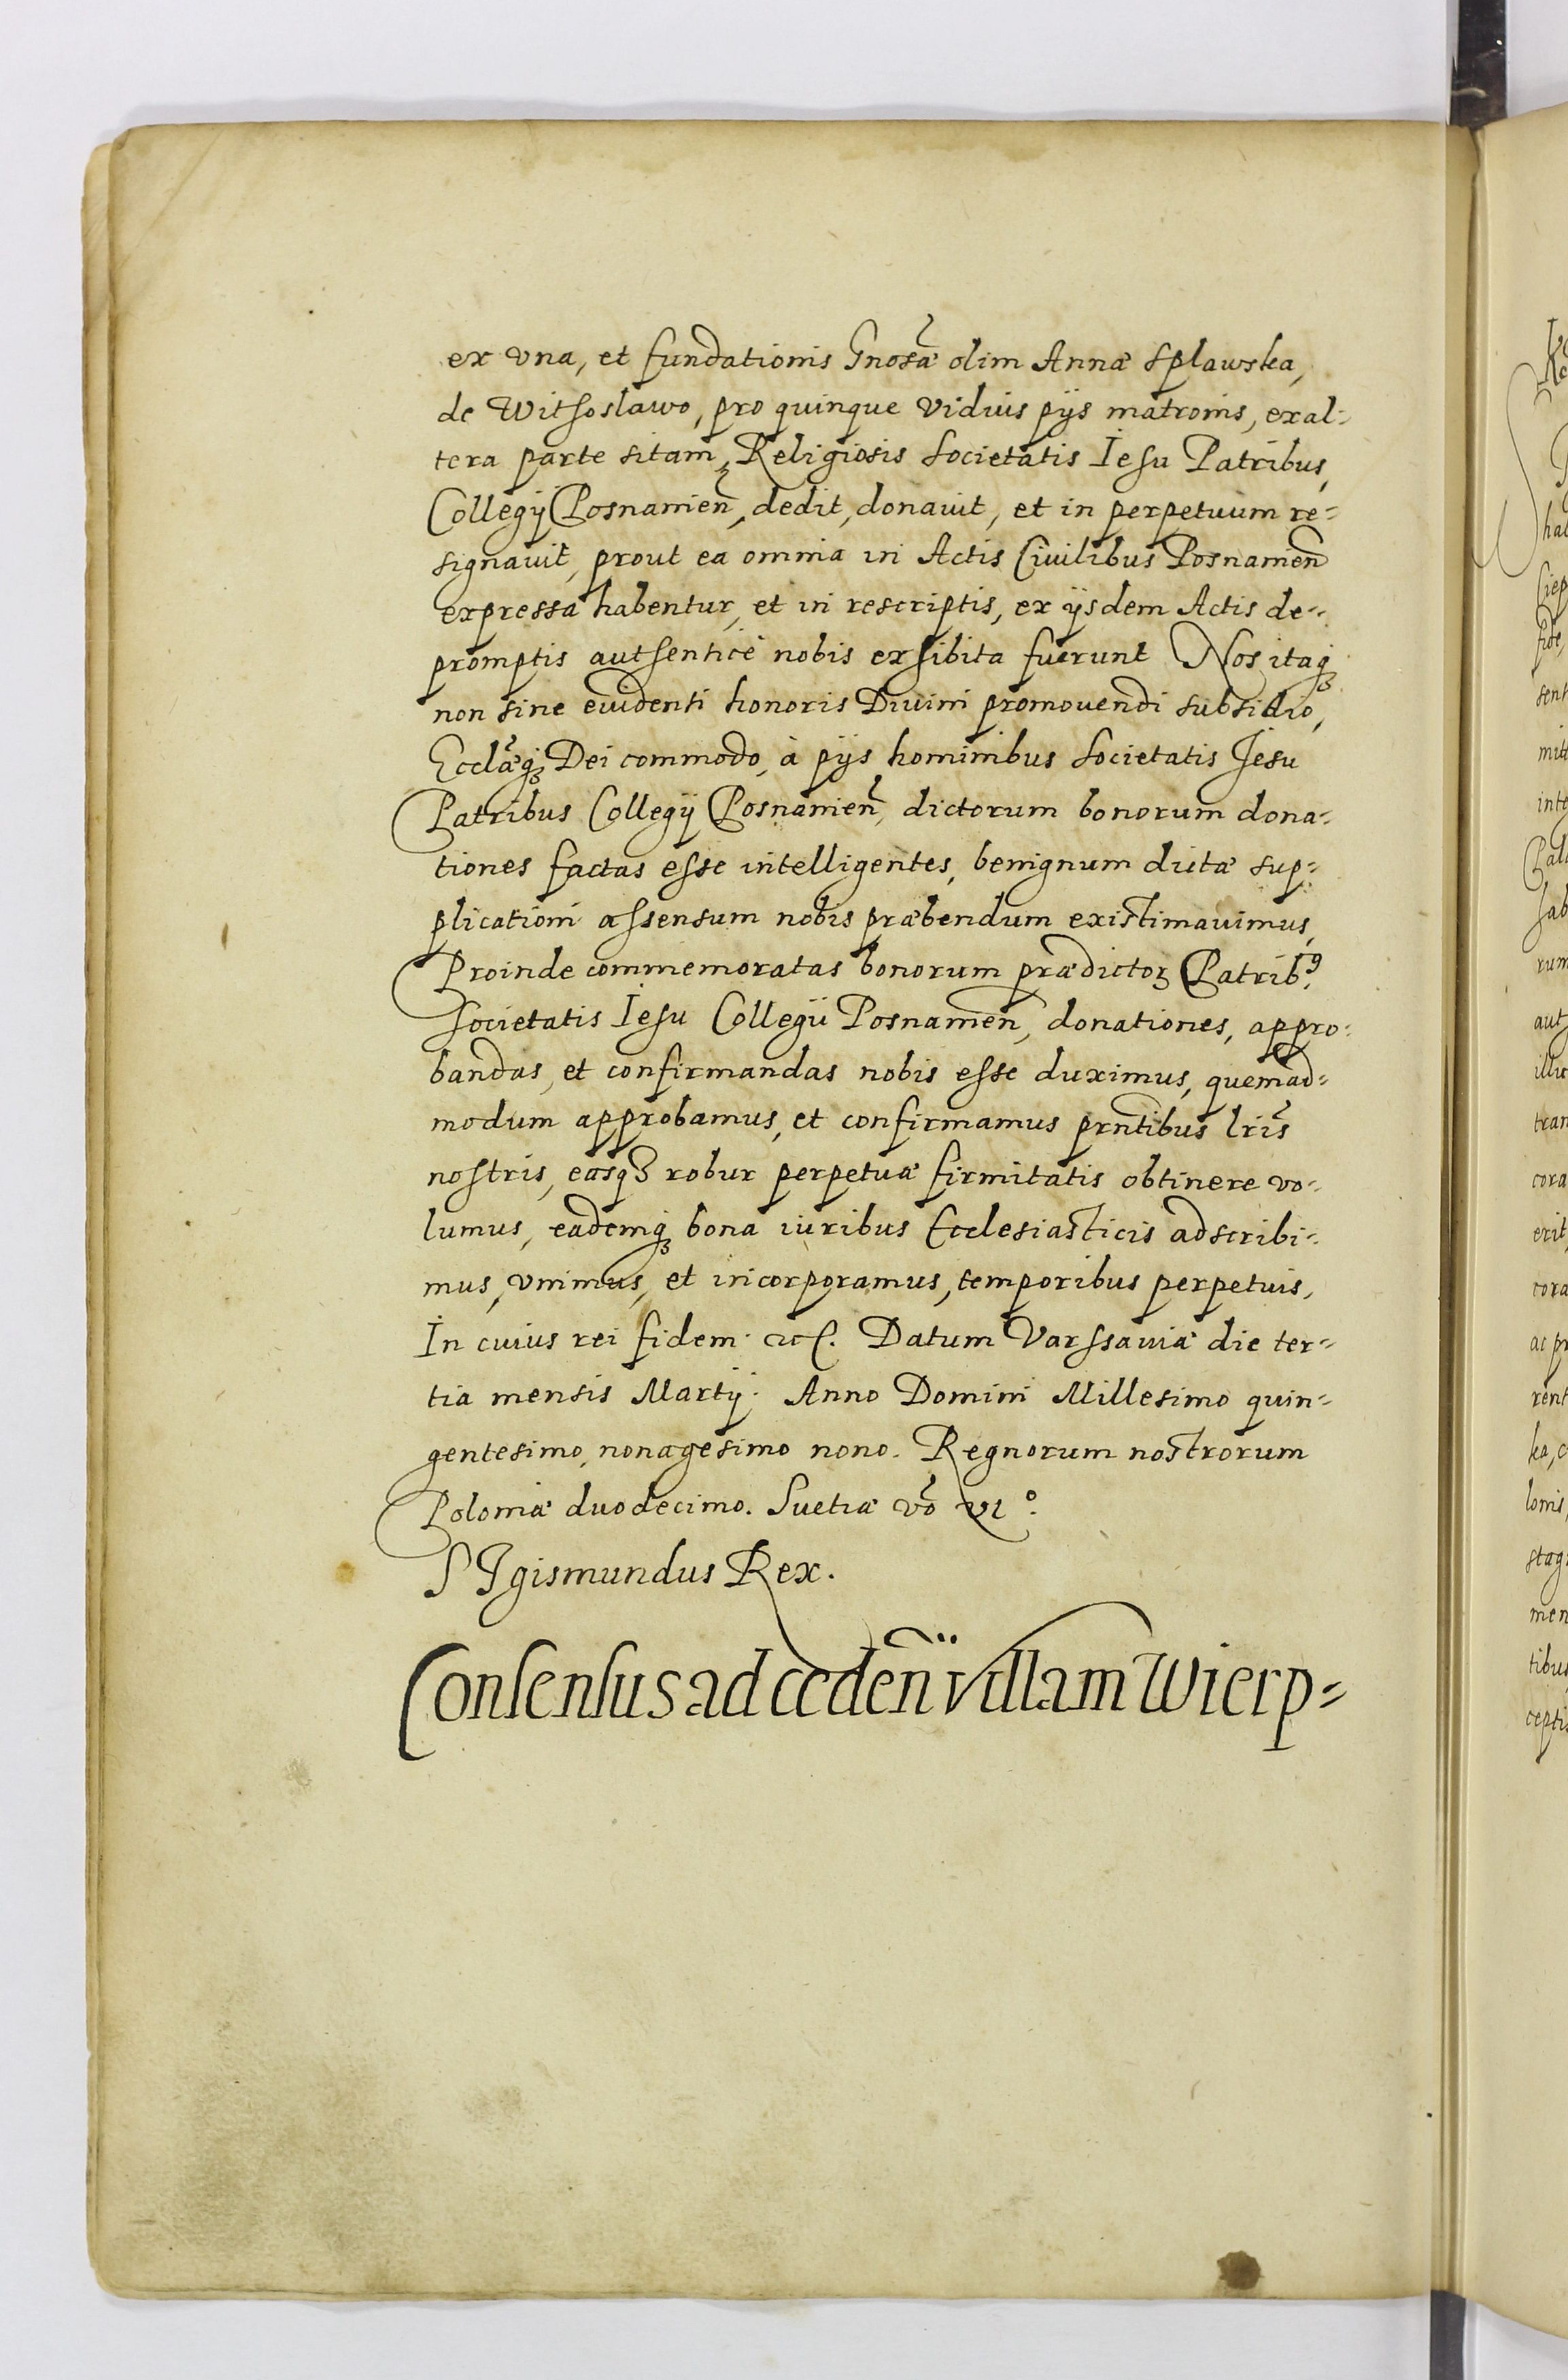 ex vna, et fundationis Gnosæ olim Annæ Splawska,
de Withoslawo, pro quinque viduis pijs matronis, ex al-
tera parte sitam, Religiosis Societatis Iesu Patribus,
Collegij Posnanien̄, dedit, donauit, et in perpetuum re-
signauit, prout ea omnia in Actis Ciuilibus Posnanien̄
expressa habentur, et in rescriptis, ex ijsdem Actis de-
promptis authenticè nobis exhibita fuerunt Nos itaqꝫ
non sine euidenti honoris Diuini promouendi subsidio,
Ecclæ̃qꝫ Dei commodo, à pijs hominibus Societatis Jesu
Patribus Collegij Posnanien̄, dictorum bonorum dona-
tiones factas esse intelligentes, benignum dictæ sup-
plicationi assensum nobis præbendum existimauimus,
Proinde commemoratas bonorum prædictoꝝ Patribꝰ,
Societatis Iesu Collegii Posnanien̄, donationes, appro-
bandas, et confirmandas nobis esse duximus, quemad-
modum approbamus, et confirmamus prn̄tibus lr̃is
nostris, easqꝫ robur perpetuæ firmitatis obtinere vo-
lumus, eademqꝫ bona iuribus Ecclesiasticis adscribi-
mus, vnimus, et incorporamus, temporibus perpetuis,
In cuius rei fidem ꝛc. Datum Varssauiæ die ter-
tia mensis Martij. Anno Domini Millesimo quin-
gentesimo, nonagesimo nono. Regnorum nostrorum
Poloniæ duodecimo. Suetiæ võ VIº.
SIgismundus Rex.
Consensus ad cedēn̄ villam Wierp-